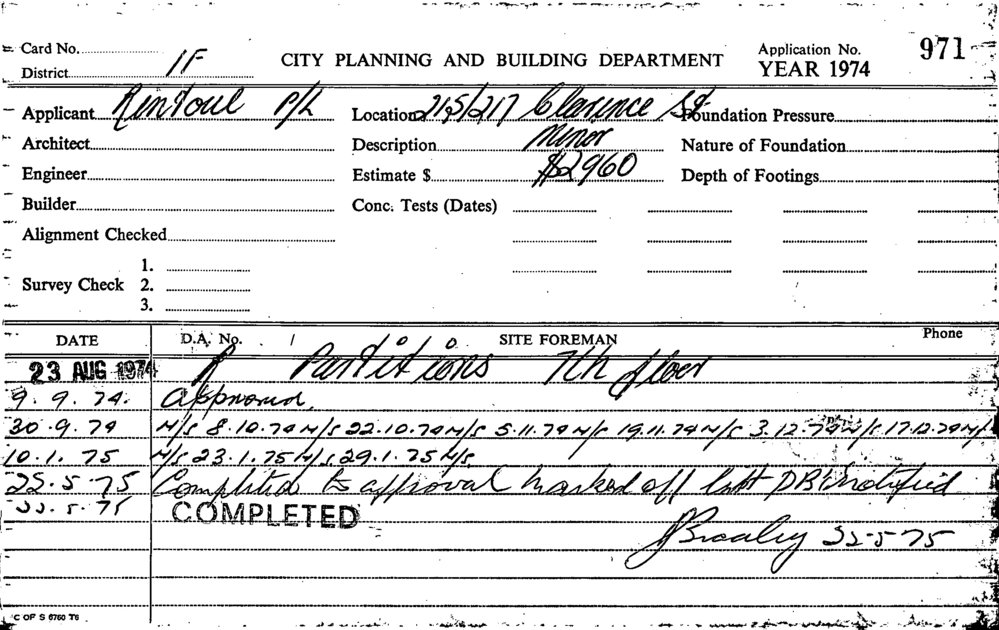 Card No.
District 1F
CITY PLANNING AND BUILDING DEPARTMENT
Application No. 971
YEAR 1974
Applicant Rintoul P/L
Location 215/217 Clarence St
Foundation Pressure
Architect
Description Minor
Nature of Foundation
Engineer
Estimate $ $2960
Depth of Footings
Builder
Conc. Tests (Dates)
Alignment Checked
1.
Survey Check 2.
3.
DATE D.A. No. SITE FOREMAN Phone
23 AUG 1974 Partitions 7th floor
9.9.74. Approved.
30.9.74 N/S 8.10.74 N/S 22.10.74 N/S 5.11.74 N/S 19.11.74 N/S 3.12.74 N/S 17.12.74 N/S
10.1.75 N/S 23.1.75 N/S 29.1.75 N/S
22.5.75 Completed to approval marked off notified
22.5.75 COMPLETED
22-5-75
C OF S 6760 T6